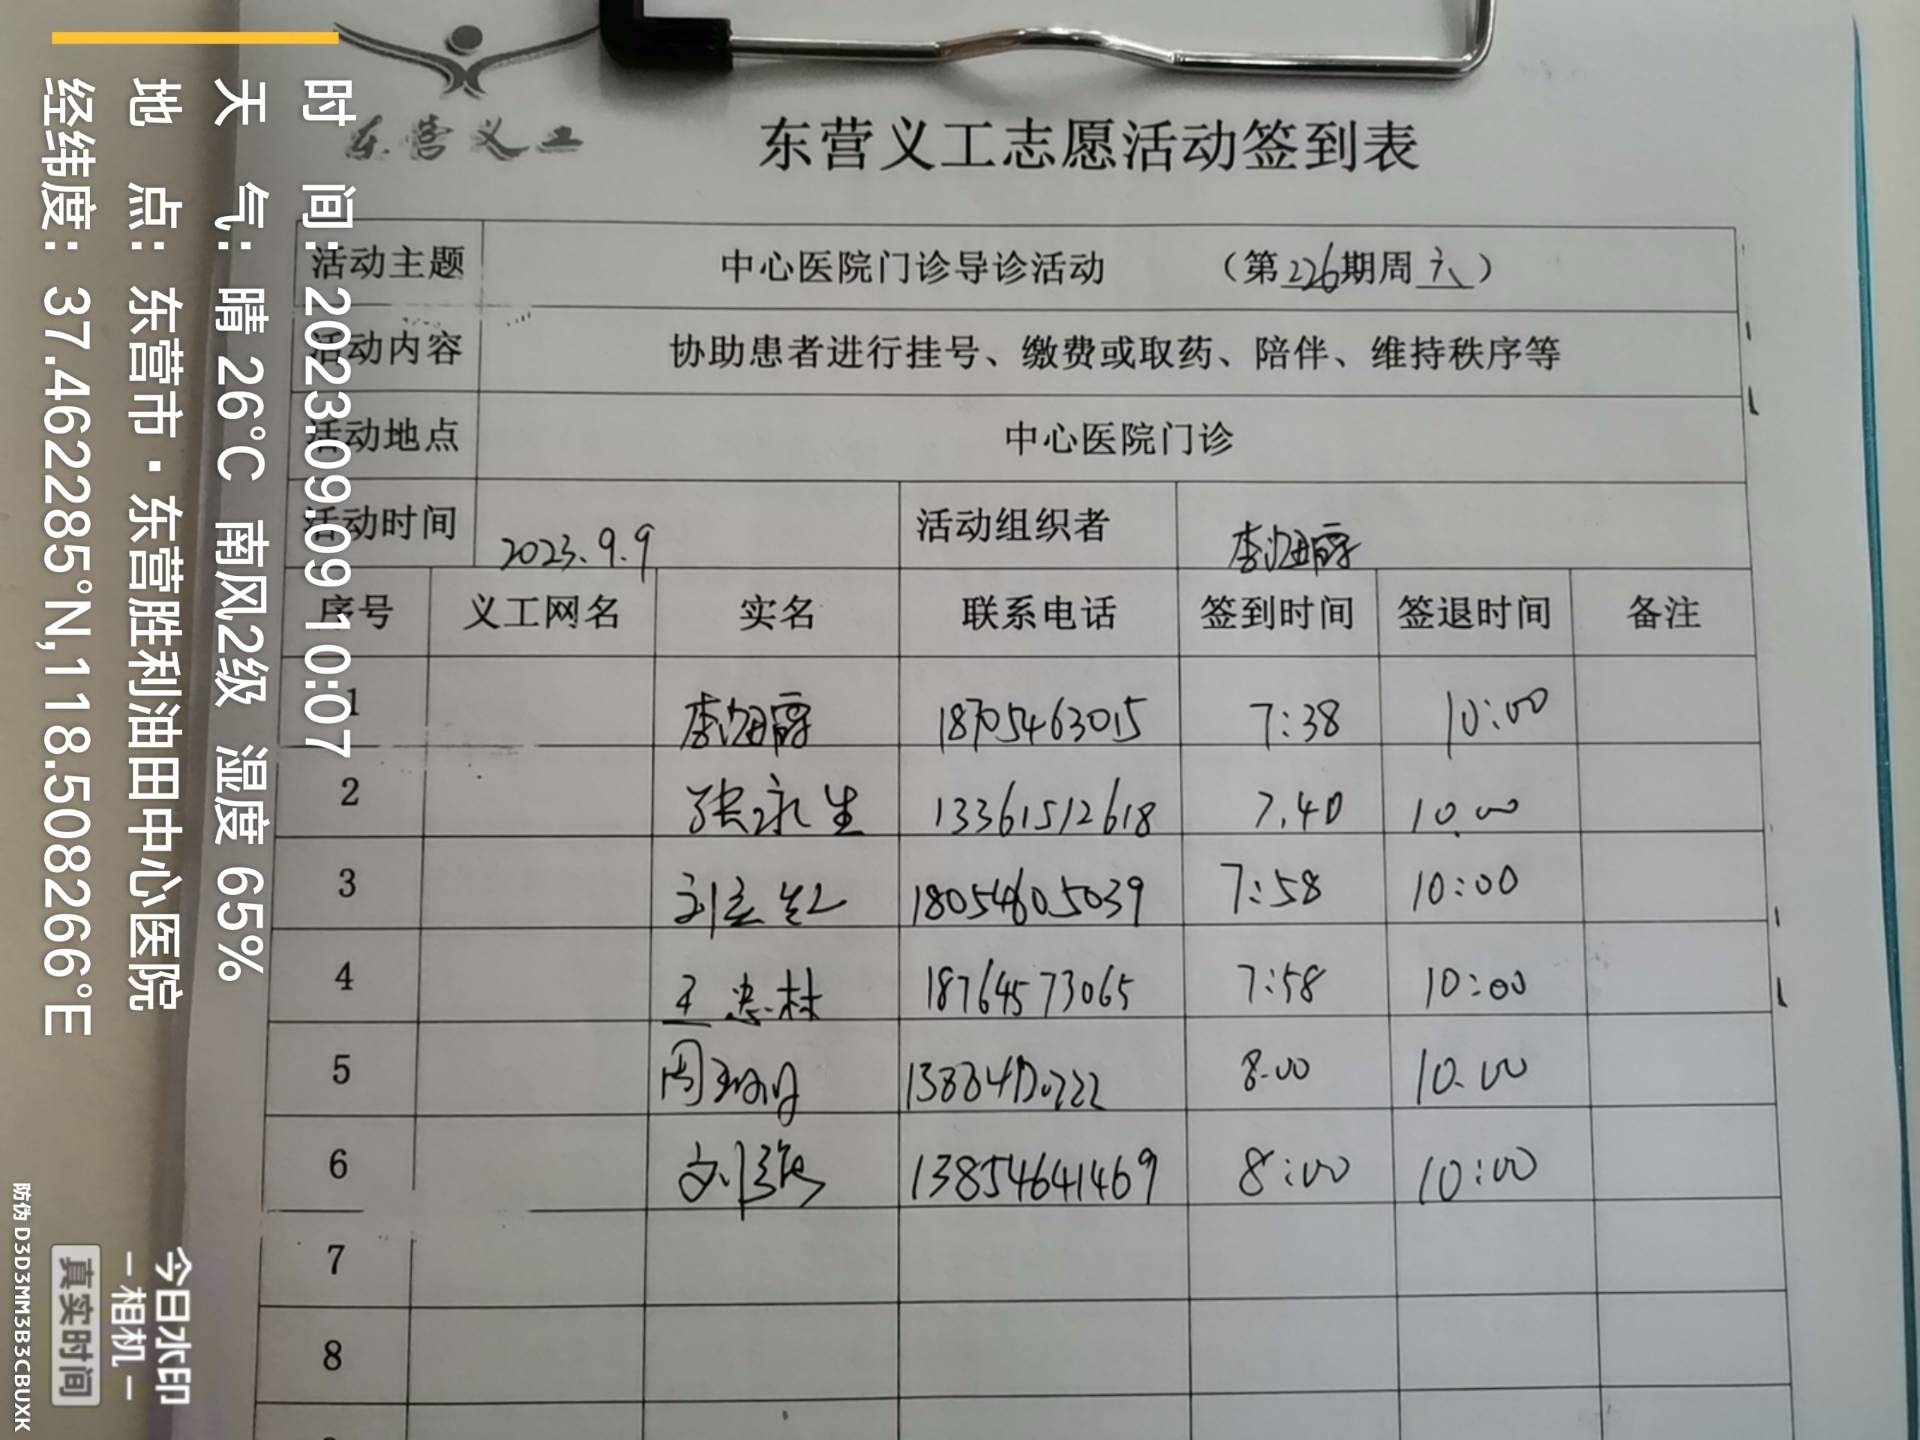 东营义工
东营义工志愿活动签到表
活动主题 中心医院门诊导诊活动 （第226期周六）
活动内容 协助患者进行挂号、缴费或取药、陪伴、维持秩序等
活动地点 中心医院门诊
活动时间 2023.9.9 活动组织者 李
序号 义工网名 实名 联系电话 签到时间 签退时间 备注
1 李 18705463015 7:38 10:00
2 张永生 13361512618 7.40 10.00
3 刘 18054605039 7:58 10:00
4 王忠林 18764573065 7:58 10:00
5 周 8.00 10.00
6 刘 13854641469 8:00 10:00
7
8
时 间: 2023.09.09 10:07
天 气: 晴 26℃ 南风2级 湿度 65%
地 点: 东营市·东营胜利油田中心医院
经纬度: 37.462285°N,118.508266°E
今日水印
相机
真实时间
防伪 D3D3MM3B3CBUXK